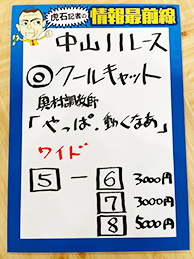 虎石記者の
情報最前線
中山11レース
◎クールキャット
奥村調教師
「やっぱ.動くなあ」
ワイド
5－6 3000円
7 3000円
8 5000円